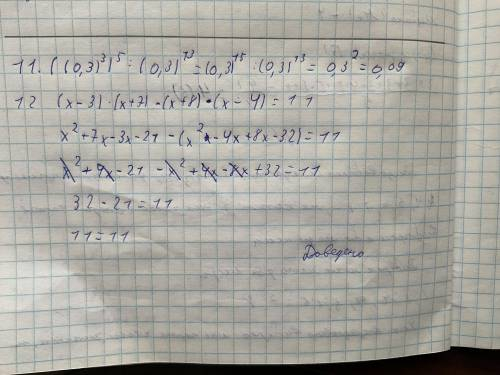 11. ((0,3)³)⁵ : (0,3)¹³ = (0,3)¹⁵ : (0,3)¹³ = 0,3² = 0,09
12 (x-3)·(x+7)-(x+8)·(x-4)=11
x²+7x-3x-21-(x²-4x+8x-32)=11
x²+4x-21-x²+4x-8x+32=11
32-21=11
11=11
Доведено